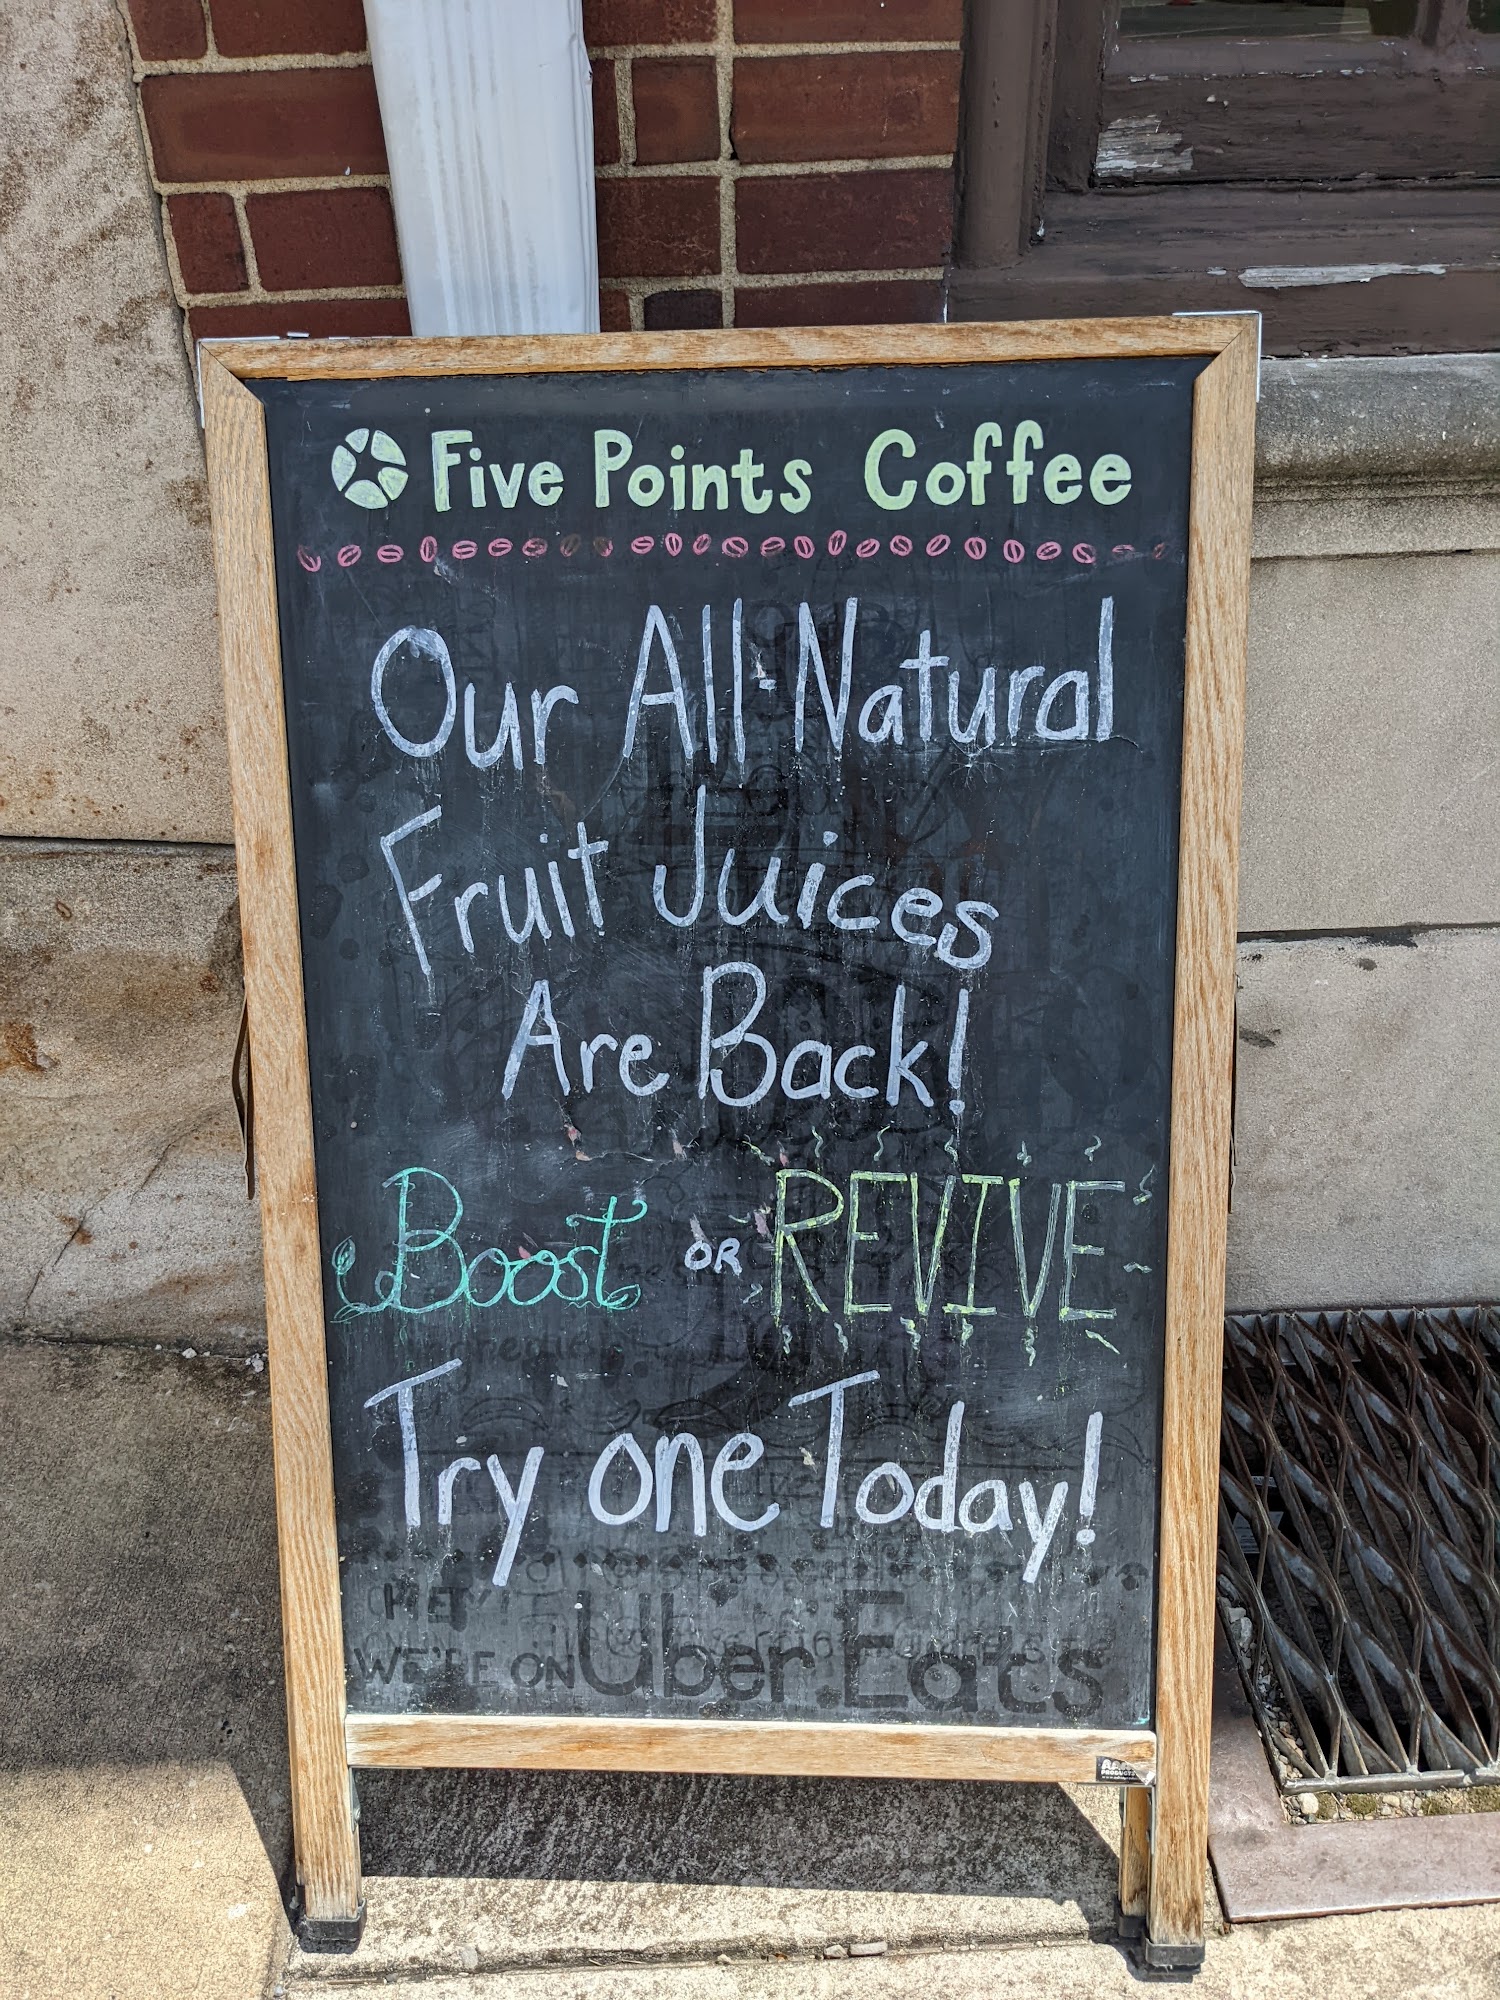 Five Points Coffee
Our All-Natural
Fruit Juices
Are Back!
Boost OR REVIVE
Try one Today!
HEY!
WE'RE ON Uber Eats